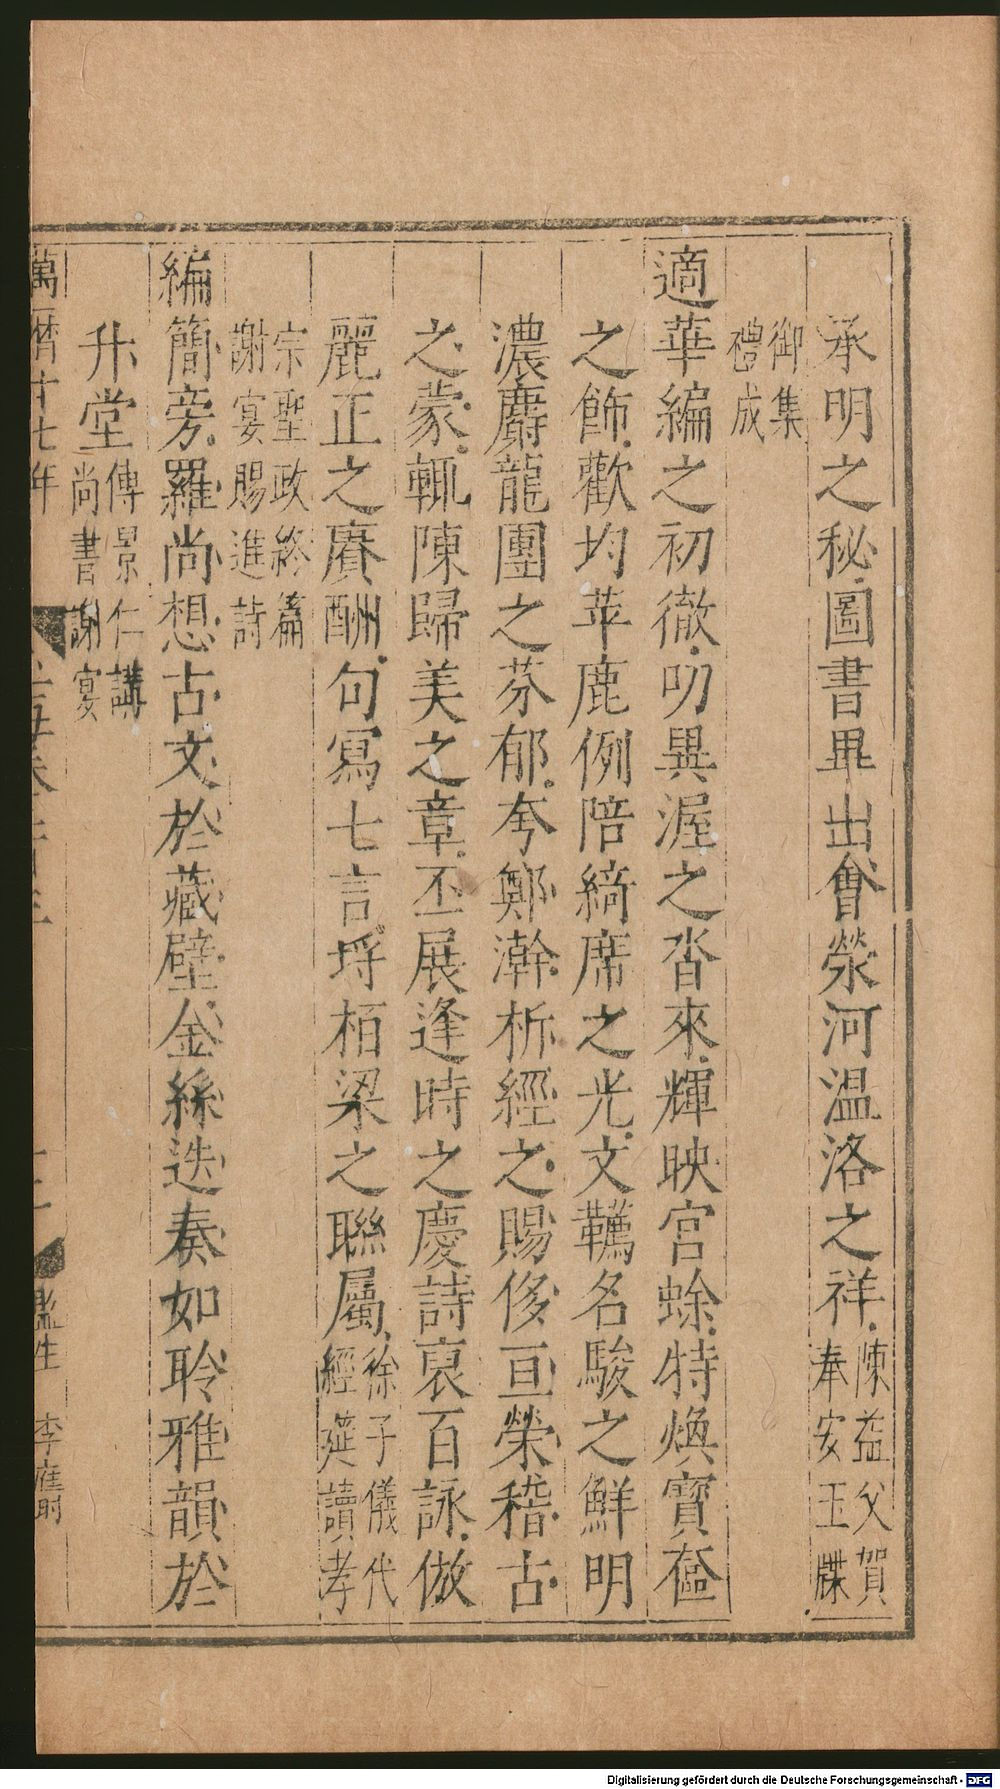 承明之秘圖書畢出會滎河温洛之祥陳益父賀
奉安玉牒
御集
禮成
適華編之初徹叨異渥之沓來輝映宮蜍特煥寳奩
之飾歡均苹鹿例陪綺席之光文韉名駿之鮮明
濃麝龍團之芬郁夸鄭澣析經之賜侈亘榮稽古
之蒙輒陳歸美之章丕展逢時之慶詩裒百詠倣
麗正之賡酬句冩七言埓栢梁之聯屬徐子儀代
經筵讀孝
宗聖政終篇
謝宴賜進詩
編簡旁羅尚想古文於藏壁金絲迭奏如聆雅韻於
升堂傳景仁講
尚書謝宴
萬曆十七年
監生 李應時
Digitalisierung gefördert durch die Deutsche Forschungsgemeinschaft - DFG